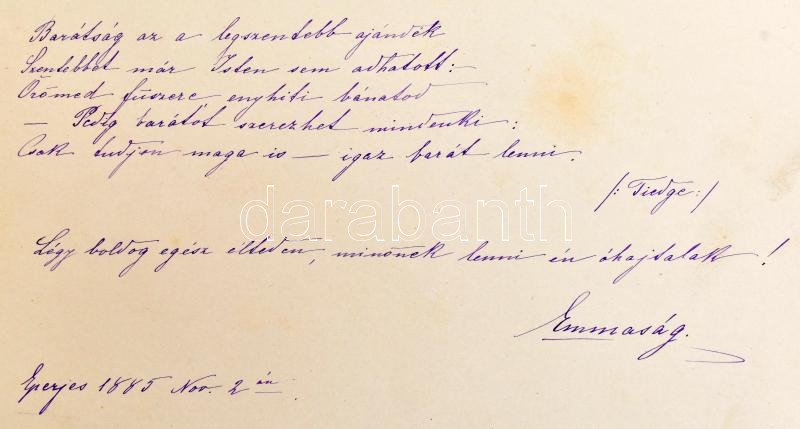 Barátság az a legszentebb ajándék
Szentebbet már Isten sem adhatott:
Örömed fűszere enyhiti bánatod
— Pedig barátot szerezhet mindenki:
Csak tudjon maga is — igaz barát lenni.
/: Tiedge :/
darabanth
Légy boldog egész élteden, minőnek lenni én óhajtalak!
Emmaság.
Eperjes 1885 Nov. 2 án